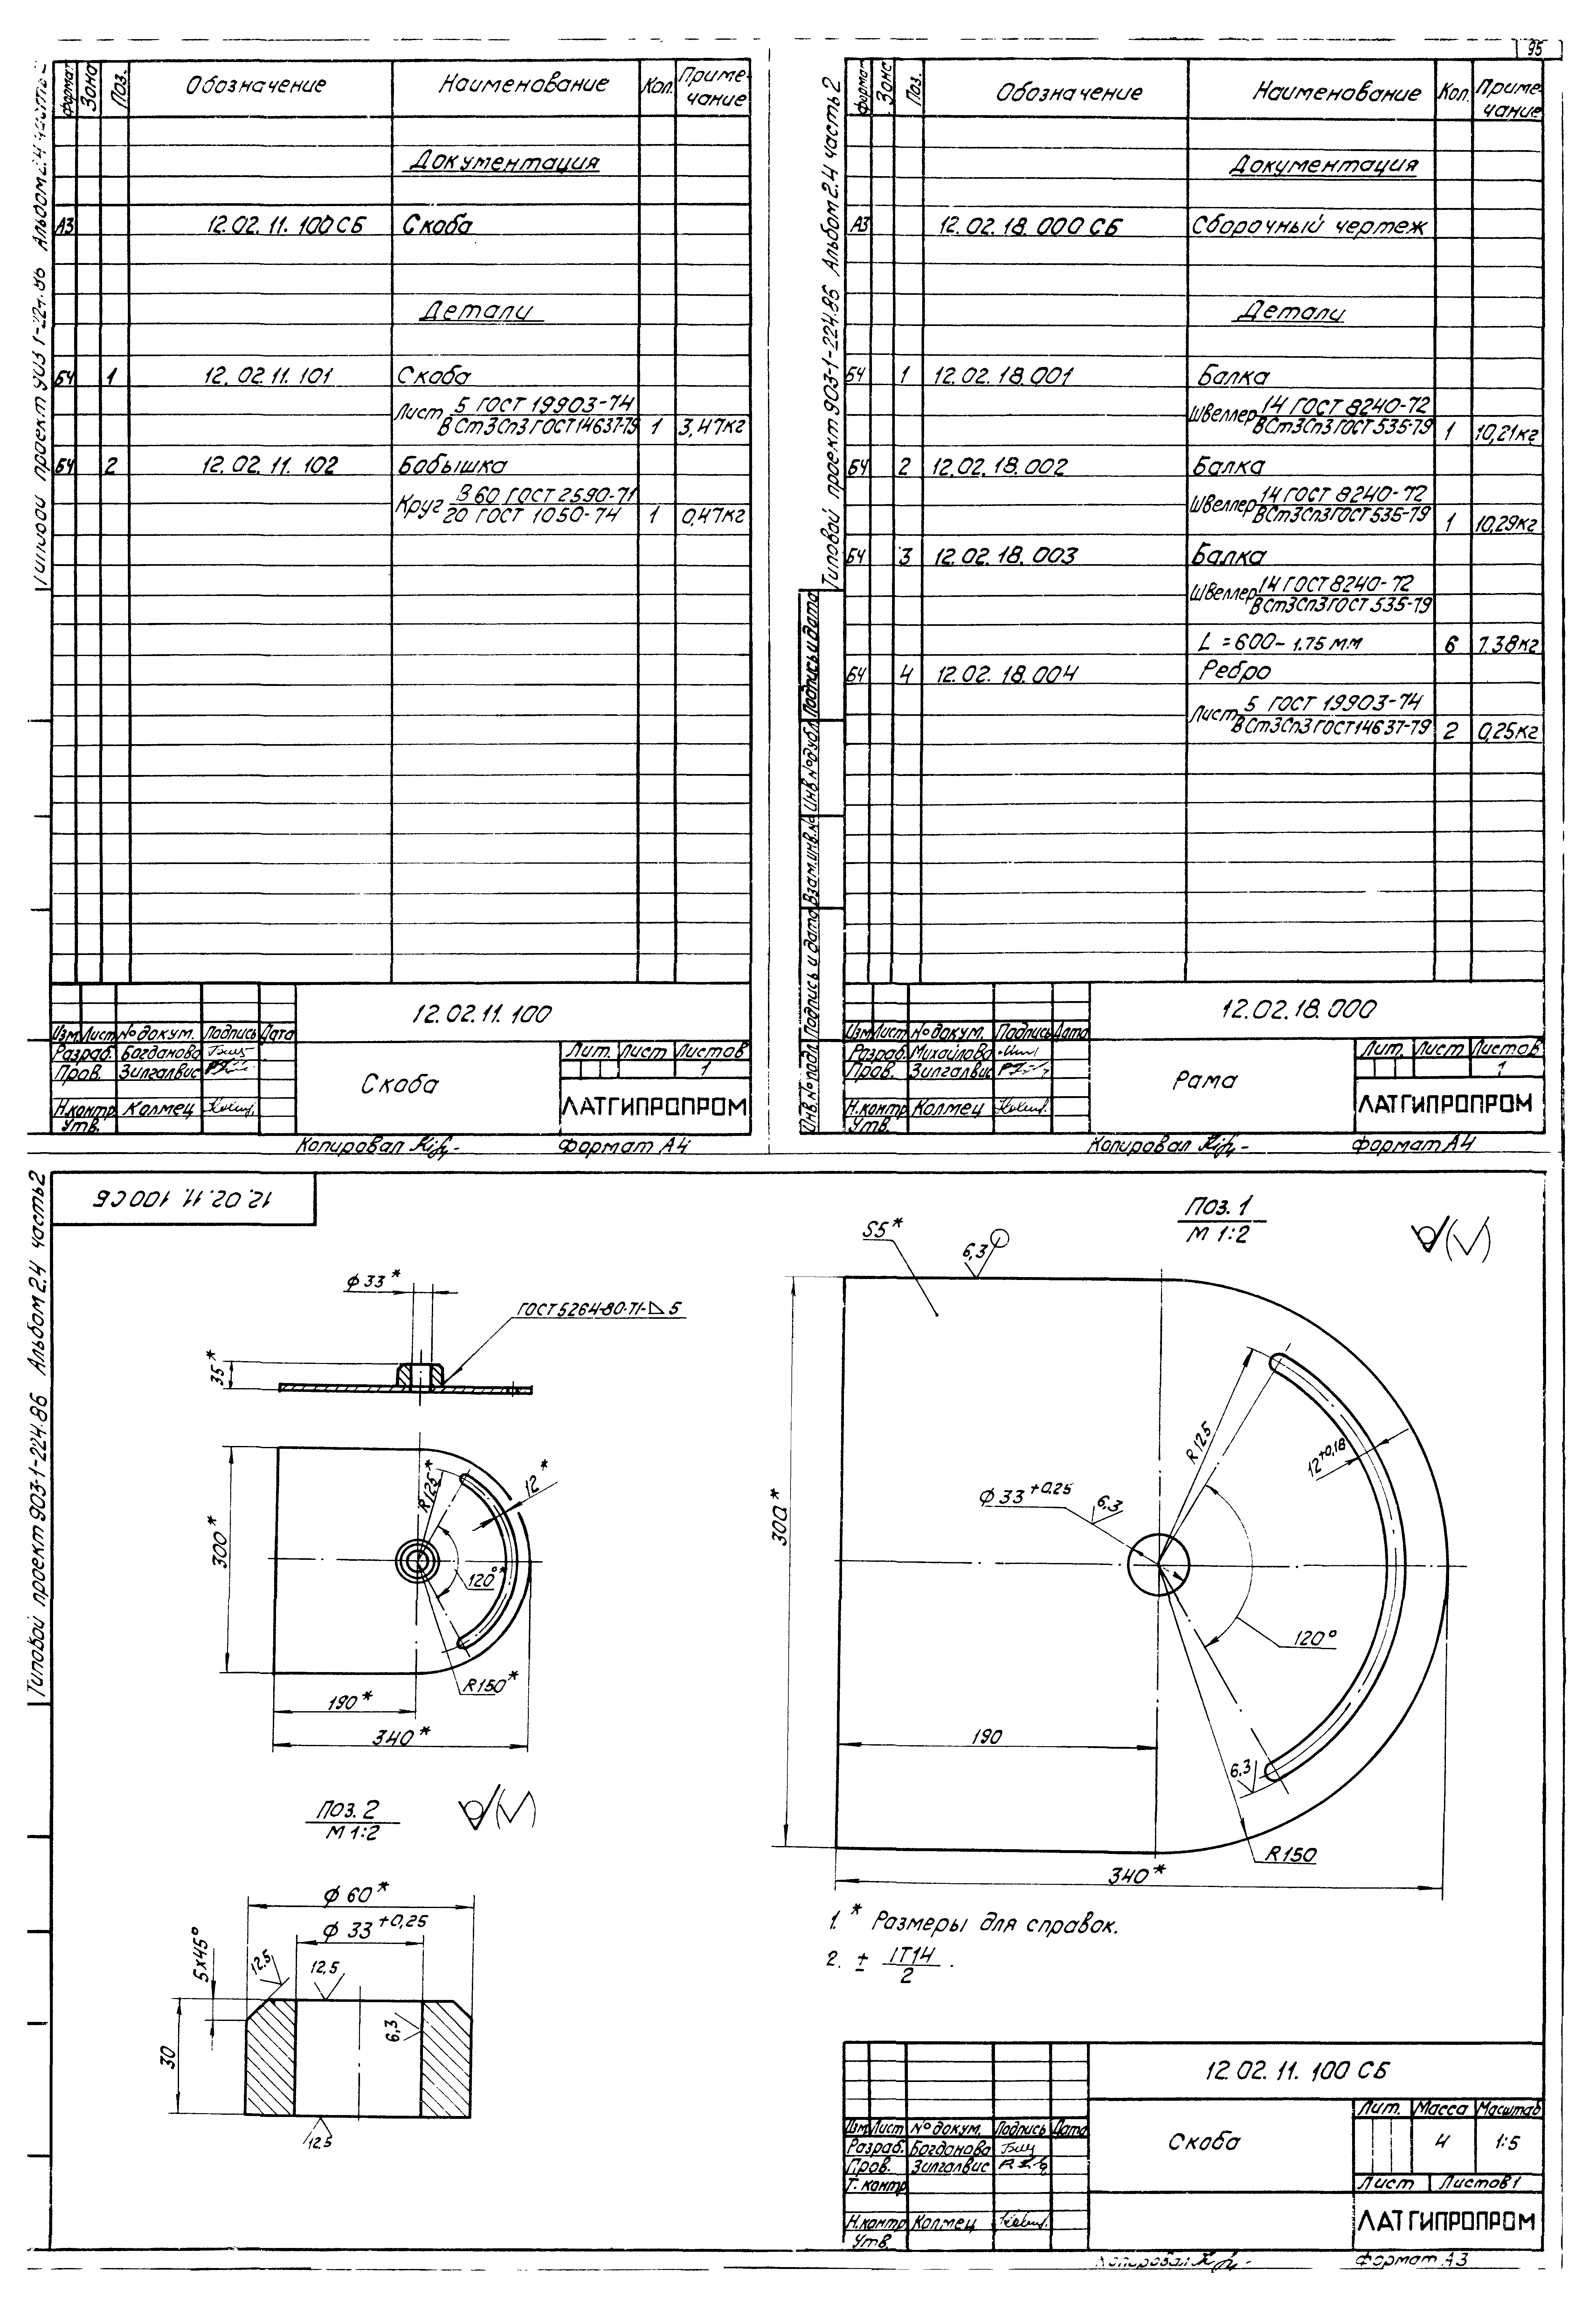 95
Типовой проект 903-1-224.86 Альбом 2.4 часть 2
Формат Зона Поз. Обозначение Наименование Кол. Приме-
чание
Документация
А3 12.02.11.100 СБ Скоба
Детали
БЧ 1 12.02.11.101 Скоба
Лист 5 ГОСТ 19903-74
ВСт3Сп3 ГОСТ 14637-79 1 3,47кг
БЧ 2 12.02.11.102 Бобышка
Круг В 60 ГОСТ 2590-71
20 ГОСТ 1050-74 1 0,47кг
12.02.11.100
Изм. Лист № докум. Подпись Дата
Разраб. Богданова
Пров. Зилгалвис
Н.контр Колмец
Утв.
Скоба
Лит. Лист Листов
1
ЛАТГИПРОПРОМ
Копировал Формат А4
Типовой проект 903-1-224.86 Альбом 2.4 часть 2
Инв.№ подл. Подпись и дата Взам.инв.№ Инв.№ дубл. Подпись и дата
Формат Зона Поз. Обозначение Наименование Кол. Приме-
чание
Документация
А3 12.02.18.000 СБ Сборочный чертеж
Детали
БЧ 1 12.02.18.001 Балка
Швеллер 14 ГОСТ 8240-72
ВСт3Сп3 ГОСТ 535-79 1 10,21кг
БЧ 2 12.02.18.002 Балка
Швеллер 14 ГОСТ 8240-72
ВСт3Сп3 ГОСТ 535-79 1 10,29кг
БЧ 3 12.02.18.003 Балка
Швеллер 14 ГОСТ 8240-72
ВСт3Сп3 ГОСТ 535-79
L = 600-1.75 мм 6 7.38кг
БЧ 4 12.02.18.004 Ребро
Лист 5 ГОСТ 19903-74
ВСт3Сп3 ГОСТ 14637-79 2 0,25кг
12.02.18.000
Изм. Лист № докум. Подпись Дата
Разраб. Михайлова
Пров. Зилгалвис
Н.контр Колмец
Утв.
Рама
Лит. Лист Листов
1
ЛАТГИПРОПРОМ
Копировал Формат А4
Типовой проект 903-1-224.86 Альбом 2.4 часть 2
12.02.11.100 СБ
ϕ 33*
ГОСТ 5264-80-Т1-◺ 5
35*
300*
R125*
12*
120°*
R150*
190*
340*
Поз. 1
М 1:2
S5*
6,3
300*
R125
12+0,18
ϕ 33+0,25
6,3
120°
190
6,3
R150
340*
Поз. 2
М 1:2
ϕ 60*
ϕ 33+0,25
5х45°
12,5
12,5
6,3
30
12,5
1. * Размеры для справок.
2. ± IT14
2 .
12.02.11.100 СБ
Изм Лист № докум. Подпись Дата
Разраб. Богданова
Пров. Зилгалвис
Т. контр
Н.контр Колмец
Утв.
Скоба
Лит. Масса Масштаб
4 1:5
Лист Листов 1
ЛАТГИПРОПРОМ
Копировал Формат А3